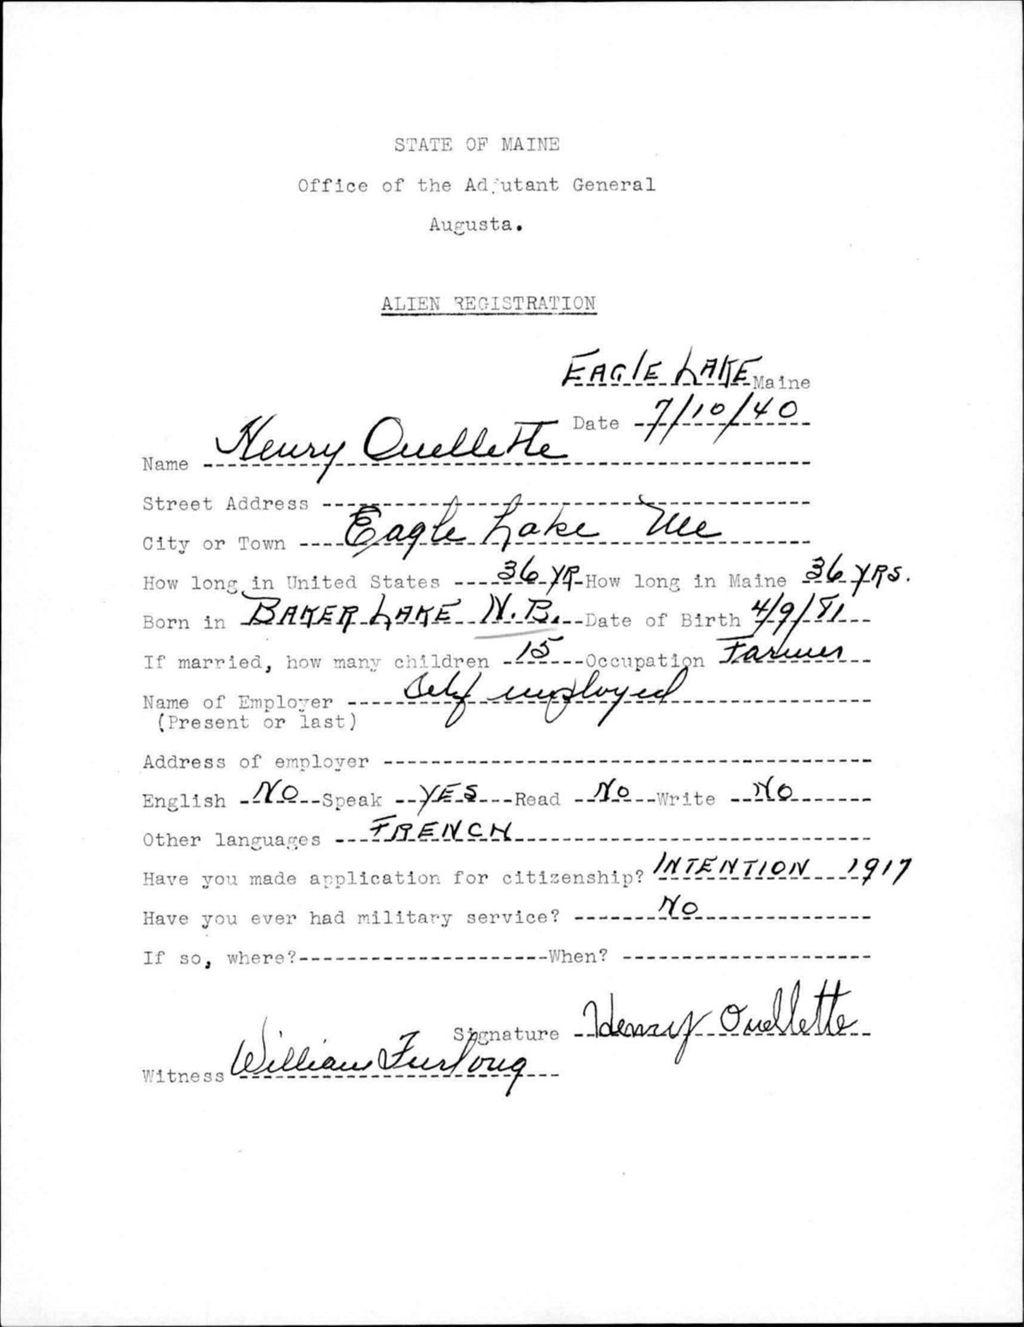 STATE OF MAINE
Office of the Adjutant General
Augusta.
ALIEN REGISTRATION
EAGLE LAKE Maine
Date 7/10/40
Name Henry Ouellette
Street Address
City or Town Eagle Lake Me
How long in United States 36 YR How long in Maine 36 YRS.
Born in BAKER LAKE N.B. Date of Birth 4/9/81
If married, how many children 15 Occupation Farmer
Name of Employer Self employed
(Present or last)
Address of employer
English NO Speak YES Read No Write No
Other languages FRENCH
Have you made application for citizenship? INTENTION 1917
Have you ever had military service? NO
If so, where? When?
Signature Henry Ouellette
Witness William Furlong